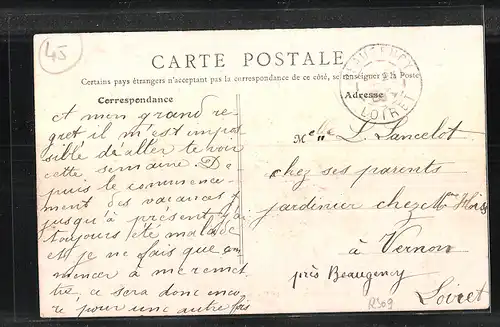 45
CARTE POSTALE
Certains pays étrangers n'acceptant pas la correspondance de ce côté, se renseigner à la Poste
Correspondance
Adresse
BEAUGENCY
LOIRET
et mon grand re
gret il m'est impos
sible d'aller te voir
cette semaine. De
puis le commence
ment des vacances
jusqu'à présent j'ai
toujours été malade
et je ne fais que com
mencer à me remet
tre, ce sera donc enco
re pour une autre fois
Melle L. Lancelot
chez ses parents
jardinier chez Mme
à Vernon
près Beaugency
Loiret
R309